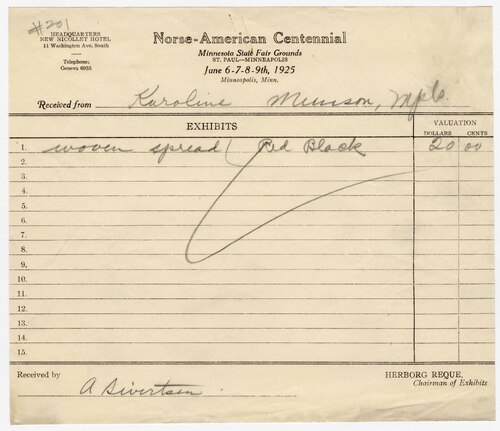 #201
HEADQUARTERS
NEW NICOLLET HOTEL
11 Washington Ave. South
Telephone:
Geneva 6935
Norse-American Centennial
Minnesota State Fair Grounds
ST. PAUL—MINNEAPOLIS
June 6-7-8-9th, 1925
Minneapolis, Minn.
Received from Karoline Munson, Mpls.
EXHIBITS
VALUATION
DOLLARS CENTS
1. woven spread ( Red Black 20 00
2.
3.
4.
5.
6.
7.
8.
9.
10.
11.
12.
13.
14.
15.
Received by
A Sivertsen
HERBORG REQUE,
Chairman of Exhibits